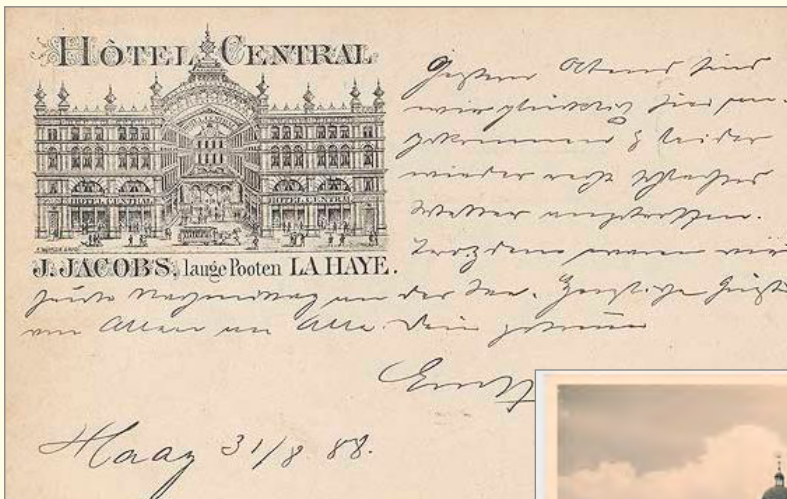 HÔTEL CENTRAL
HOTEL CENTRAL HOTEL CENTRAL
J. JACOBS, lange Pooten LA HAYE.
Gestern Abend sind
wir glücklich hier an-
gekommen & leider
wieder recht schlechtes
Wetter angetroffen.
Trotzdem waren wir
heute Nachmittag an der See. Herzliche Grüße
von Allen an Alle. Dein getreuer
Ernst
Haag 31/8 88.